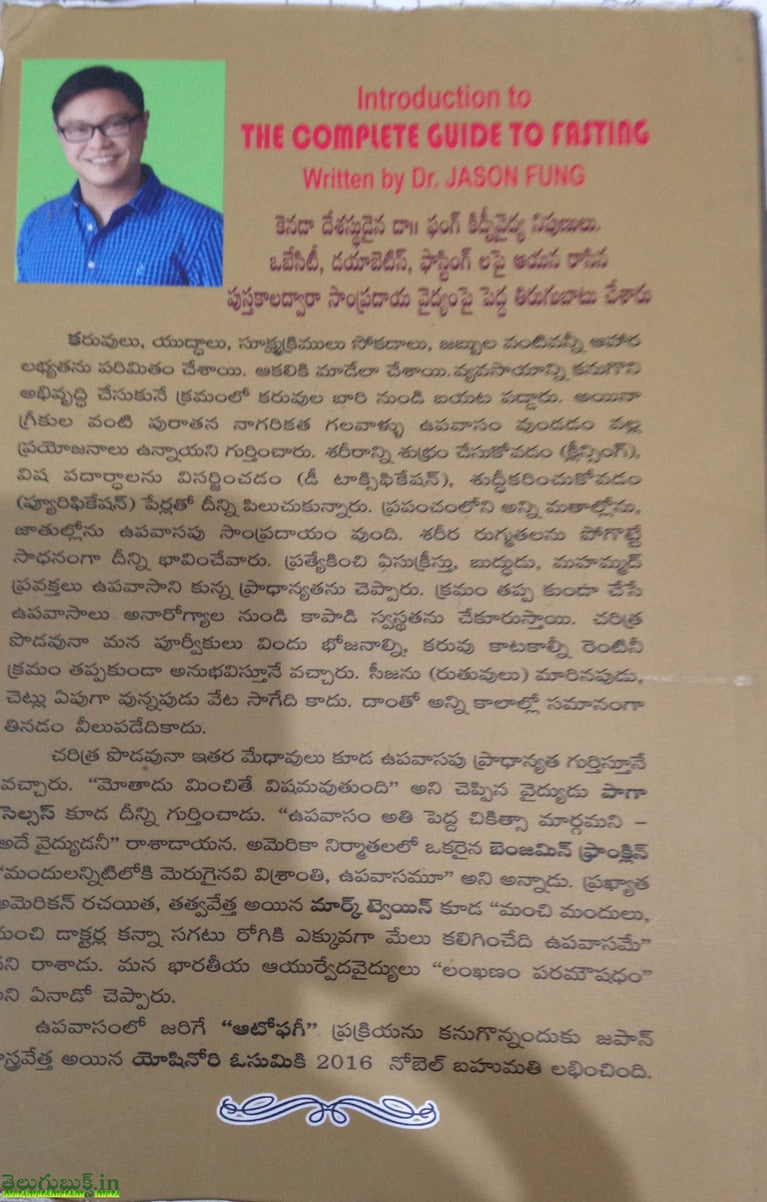 Introduction to
THE COMPLETE GUIDE TO FASTING
Written by Dr. JASON FUNG
కెనడా దేశస్థుడైన డా॥ ఫంగ్ కిడ్నీవైద్య నిపుణులు.
ఒబేసిటీ, డయాబెటిస్, ఫాస్టింగ్ లపై ఆయన రాసిన
పుస్తకాలద్వారా సాంప్రదాయ వైద్యంపై పెద్ద తిరుగుబాటు చేశారు
కరువులు, యుద్ధాలు, సూక్ష్మక్రిములు సోకడాలు, జబ్బుల వంటివన్నీ ఆహార
లభ్యతను పరిమితం చేశాయి. ఆకలికి మాడేలా చేశాయి. వ్యవసాయాన్ని కనుగొని
అభివృద్ధి చేసుకునే క్రమంలో కరువుల బారి నుండి బయట పడ్డారు. అయినా
గ్రీకుల వంటి పురాతన నాగరికత గలవాళ్ళు ఉపవాసం వుండడం వల్ల
ప్రయోజనాలు ఉన్నాయని గుర్తించారు. శరీరాన్ని శుభ్రం చేసుకోవడం (క్లీన్సింగ్),
విష పదార్ధాలను విసర్జించడం (డీ టాక్సిఫికేషన్), శుద్ధీకరించుకోవడం
(ప్యూరిఫికేషన్) పేర్లతో దీన్ని పిలుచుకున్నారు. ప్రపంచంలోని అన్ని మతాల్లోను,
జాతుల్లోను ఉపవాసపు సాంప్రదాయం వుంది. శరీర రుగ్మతలను పోగొట్టే
సాధనంగా దీన్ని భావించేవారు. ప్రత్యేకించి ఏసుక్రీస్తు, బుద్ధుడు, మహమ్మద్
ప్రవక్తలు ఉపవాసాని కున్న ప్రాధాన్యతను చెప్పారు. క్రమం తప్ప కుండా చేసే
ఉపవాసాలు అనారోగ్యాల నుండి కాపాడి స్వస్థతను చేకూరుస్తాయి. చరిత్ర
పొడవునా మన పూర్వీకులు విందు భోజనాల్ని, కరువు కాటకాల్నీ రెంటినీ
క్రమం తప్పకుండా అనుభవిస్తూనే వచ్చారు. సీజను (రుతువులు) మారినపుడు,
చెట్లు ఏపుగా వున్నపుడు వేట సాగేది కాదు. దాంతో అన్ని కాలాల్లో సమానంగా
తినడం వీలుపడేదికాదు.
చరిత్ర పొడవునా ఇతర మేధావులు కూడ ఉపవాసపు ప్రాధాన్యత గుర్తిస్తూనే
వచ్చారు. “మోతాదు మించితే విషమవుతుంది” అని చెప్పిన వైద్యుడు పారా
సెల్సస్ కూడ దీన్ని గుర్తించాడు. “ఉపవాసం అతి పెద్ద చికిత్సా మార్గమని –
అదే వైద్యుడనీ” రాశాడాయన. అమెరికా నిర్మాతలలో ఒకరైన బెంజమిన్ ఫ్రాంక్లిన్
“మందులన్నిటిలోకి మెరుగైనవి విశ్రాంతి, ఉపవాసమూ” అని అన్నాడు. ప్రఖ్యాత
అమెరికన్ రచయిత, తత్వవేత్త అయిన మార్క్ ట్వెయిన్ కూడ “మంచి మందులు,
మంచి డాక్టర్ల కన్నా సగటు రోగికి ఎక్కువగా మేలు కలిగించేది ఉపవాసమే”
ని రాశాడు. మన భారతీయ ఆయుర్వేదవైద్యులు “లంఖణం పరమౌషధం”
ని ఏనాడో చెప్పారు.
ఉపవాసంలో జరిగే “ఆటోఫగీ” ప్రక్రియను కనుగొన్నందుకు జపాన్
స్త్రవేత్త అయిన యోషినోరి ఓసుమికి 2016 నోబెల్ బహుమతి లభించింది.
తెలుగుబుక్స్.in